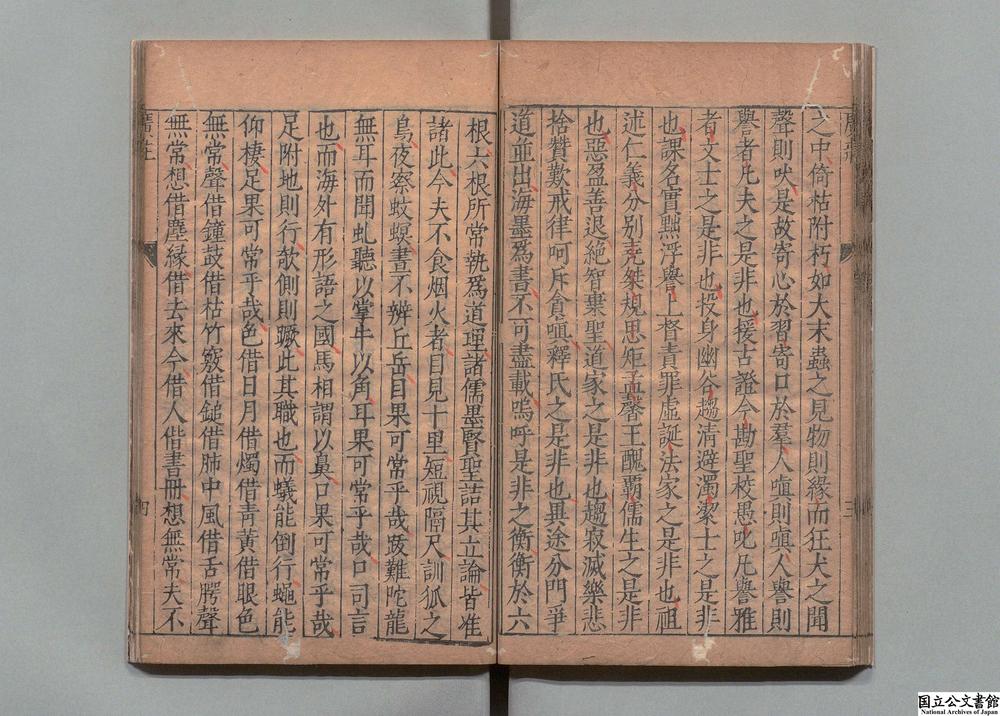 之中倚枯附朽如大末蟲之見物則緣而狂犬之聞
聲則吠是故寄心於習寄口於羣人嗔則嗔人譽則
譽者凡夫之是非也援古證今勘聖校愚叱凡譽雅
者文士之是非也投身幽谷趨清避濁潔士之是非
也課名實黜浮譽上督責罪虛誕法家之是非也祖
述仁義分別堯桀規思矩孟馨王醜覇儒生之是非
也惡盈善退絕智棄聖道家之是非也趨寂滅樂悲
捨贊歎戒律呵斥貪嗔釋氏之是非也異途分門爭
道並出海墨為書不可盡載嗚呼是非之衡衡於六
根六根所常執為道理諸儒墨賢聖詰其立論皆准
諸此今夫不食烟火者目見十里短視隔尺訓狐之
鳥夜察蚊螟晝不辨丘岳目果可常乎哉跋難陀龍
無耳而聞虬聽以掌牛以角耳果可常乎哉口司言
也而海外有形語之國馬相謂以鼻口果可常乎哉
足附地則行欹側則蹶此其職也而蟻能倒行蠅能
仰棲足果可常乎哉色借日月借燭借青黃借眼色
無常聲借鐘鼓借枯竹竅借鎚借肺中風借舌腭聲
無常想借塵緣借去來今借人借書冊想無常夫不
廣莊
三
廣莊
四
国立公文書館
National Archives of Japan